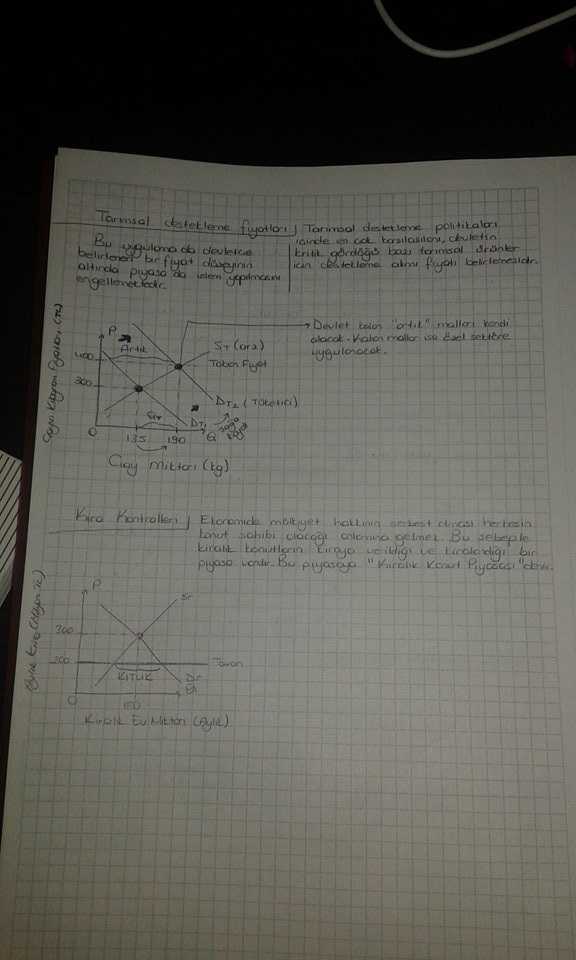 Tarımsal destekleme fiyatları / Tarımsal destekleme politikaları
içinde en çok karşılaşılanı, devletin
kritik gördüğü bazı tarımsal ürünler
için destekleme alımı fiyatı belirlemesidir.
Bu uygulamada devletce
belirlenen bir fiyat düzeyinin
altında piyasada işlem yapılmasını
engellemektedir.
Devlet kalan "artık" malları kendi
alacak. Kalan mallar ise özel sektöre
uygulanacak.
P
Artık
ST (arz)
400
Taban Fiyat
300
DT2 (Tüketici)
DT1
sağa
0
135
190
Q
Çay Miktarı (kg)
Kira Kontrolleri / Ekonomide mülkiyet hakkının serbest olması herkesin
konut sahibi olacağı anlamına gelmez. Bu sebeple
kiralık konutların kiraya verildiği ve kiralandığı bir
piyasa vardır. Bu piyasaya "Kiralık Konut Piyasası" denir.
P
300
200
Tavan
KITLIK
0
150
Kiralık Ev Miktarı (Aylık)